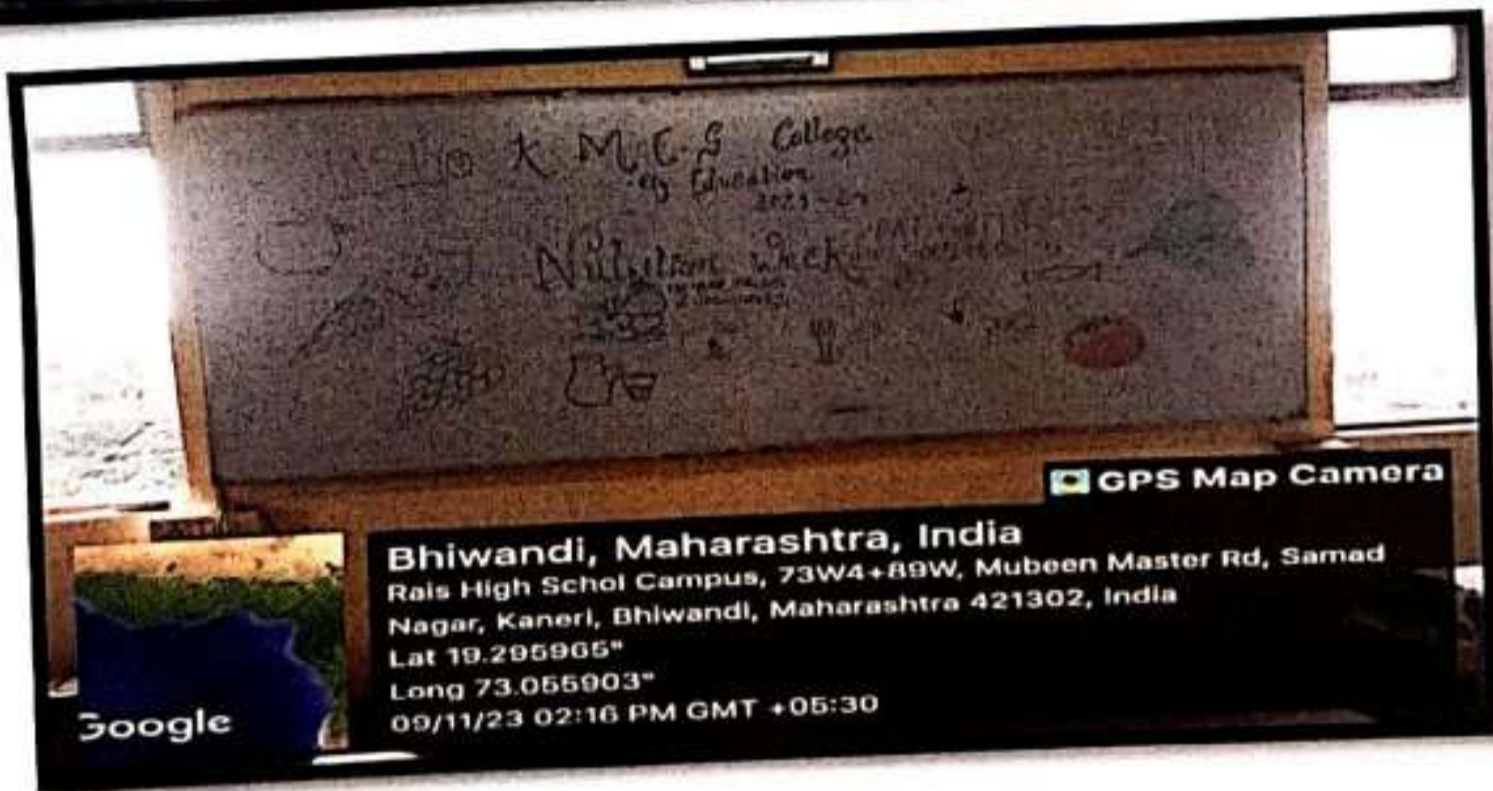 K. M. E. S College
of Education
Nutrition Week
GPS Map Camera
Bhiwandi, Maharashtra, India
Rais High Schol Campus, 73W4+89W, Mubeen Master Rd, Samad
Nagar, Kaneri, Bhiwandi, Maharashtra 421302, India
Lat 19.295965°
Long 73.055903°
09/11/23 02:16 PM GMT +05:30
Google